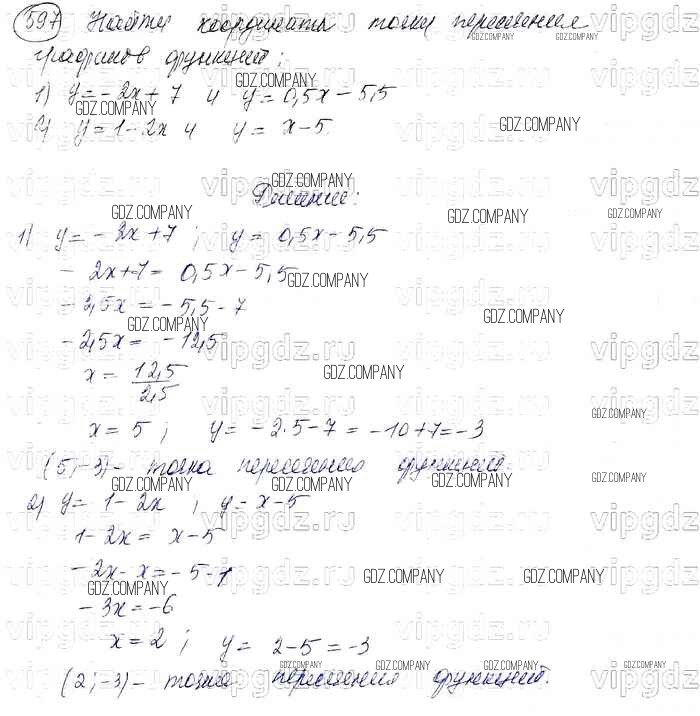 597 Найти координаты точки пересечения
графиков функций:
1) y = -2x + 7 и y = 0,5x - 5,5
2) y = 1 - 2x и y = x - 5
Решение:
1) y = -2x + 7 ; y = 0,5x - 5,5
- 2x + 7 = 0,5x - 5,5
- 2,5x = - 5,5 - 7
- 2,5x = - 12,5
x = 12,5 / 2,5
x = 5 ; y = - 2·5 - 7 = - 10 + 7 = - 3
(5; -3) - точка пересечения функций.
2) y = 1 - 2x ; y = x - 5
1 - 2x = x - 5
- 2x - x = - 5 - 1
- 3x = - 6
x = 2 ; y = 2 - 5 = - 3
(2; -3) - точка пересечения функций.